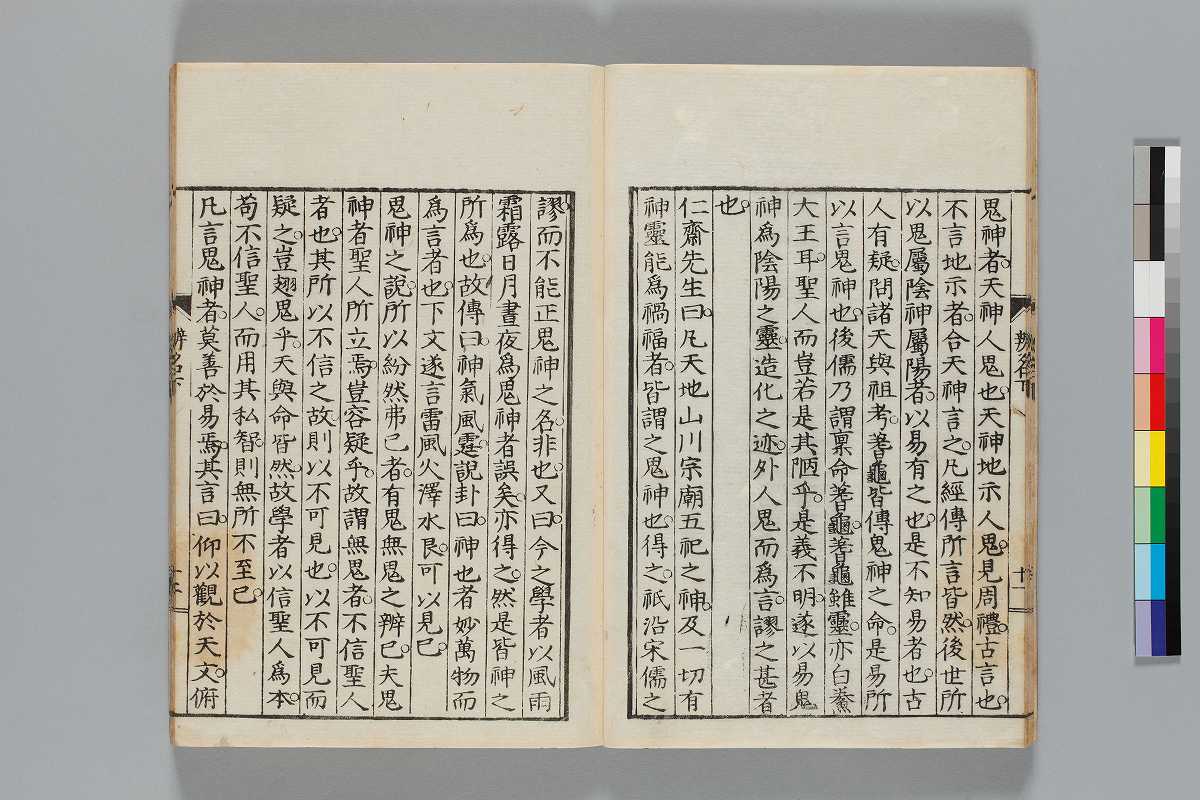 鬼神者。天神人鬼也。天神地示人鬼。見周禮。古言也。
不言地示者。合天神言之。凡經傳所言皆然。後世所
以鬼屬陰神屬陽者。以易有之也。是不知易者也。古
人有疑。問諸天與祖考。蓍龜皆傳鬼神之命。是易所
以言鬼神也。後儒乃謂稟命蓍龜。蓍龜雖靈。亦白鰲
大王耳。聖人而豈若是其陋乎。是義不明。遂以易鬼
神爲陰陽之靈。造化之迹。外人鬼而爲言。謬之甚者
也。
仁齋先生曰。凡天地山川宗廟五祀之神。及一切有
神靈能爲禍福者。皆謂之鬼神也。得之。祇沿宋儒之
辨名下
十一
謬而不能正鬼神之名。非也。又曰。今之學者以風雨
霜露日月晝夜爲鬼神者誤矣。亦得之。然是皆神之
所爲也。故傳曰。神氣風霆。說卦曰。神也者妙萬物而
爲言者也。下文遂言雷風火澤水艮。可以見已。
鬼神之說。所以紛然弗已者。有鬼無鬼之辨已。夫鬼
神者聖人所立焉。豈容疑乎。故謂無鬼者。不信聖人
者也。其所以不信之故。則以不可見也。以不可見而
疑之。豈翅鬼乎。天與命皆然。故學者以信聖人爲本。
苟不信聖人。而用其私智。則無所不至已。
凡言鬼神者。莫善於易焉。其言曰。仰以觀於天文。俯
辨名下